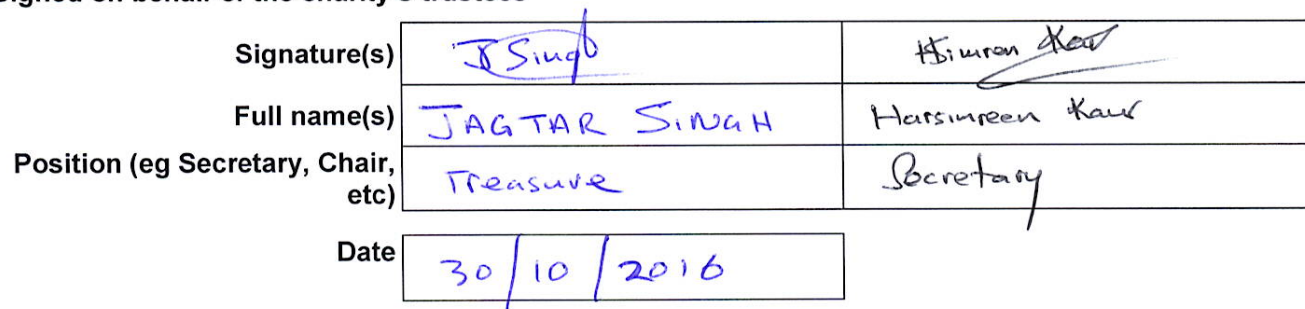 Signed on behalf of the charity's trustees
Signature(s) JSSingh HSimran Kaur
Full name(s) JAGTAR SINGH Harsimreen Kaur
Position (eg Secretary, Chair, etc) Treasure Secretary
Date 30/10/2016